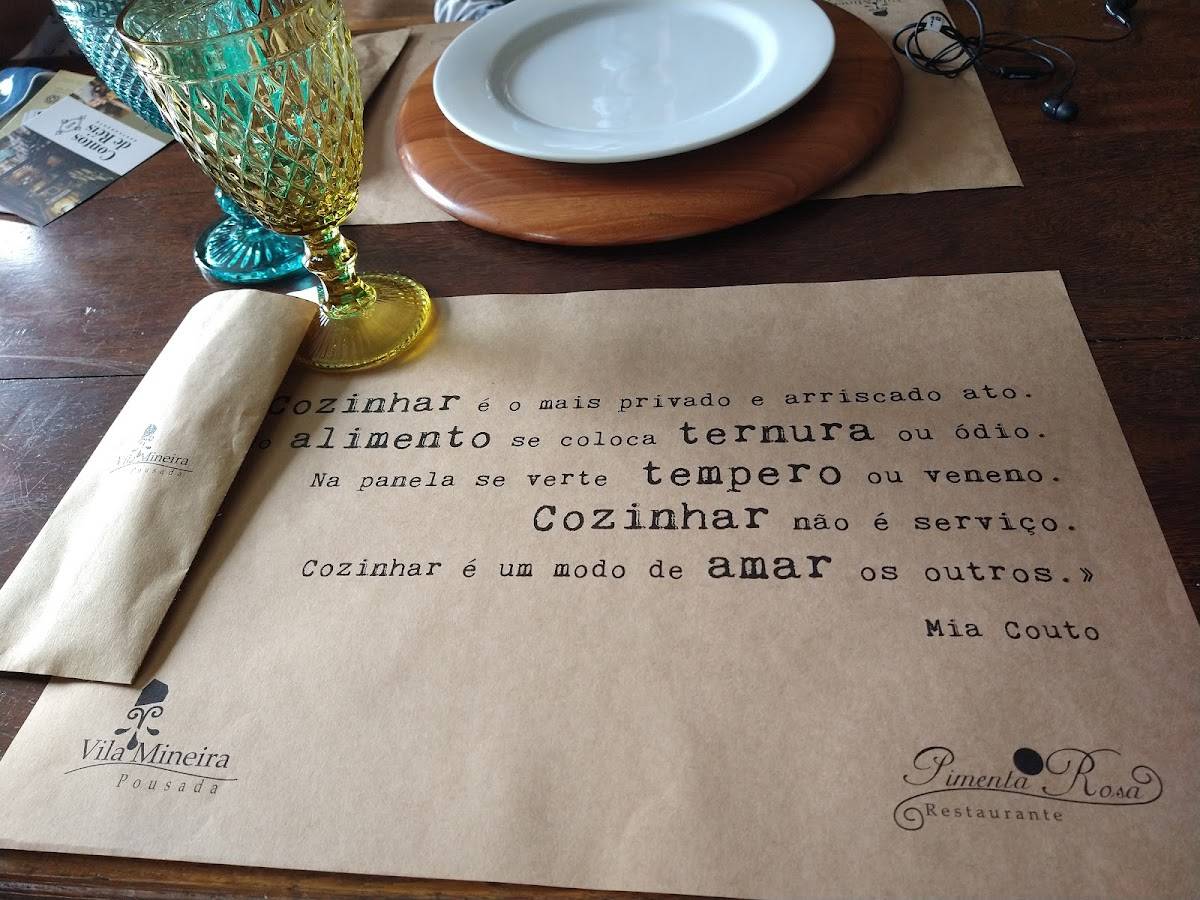 Contos
de Réis
Vila Mineira
Pousada
Cozinhar é o mais privado e arriscado ato.
alimento se coloca ternura ou ódio.
Na panela se verte tempero ou veneno.
Cozinhar não é serviço.
Cozinhar é um modo de amar os outros.»
Mia Couto
Vila Mineira
Pousada
Pimenta Rosa
Restaurante